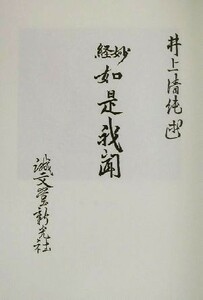 井上清純述
妙経
如是我聞
誠文堂新光社